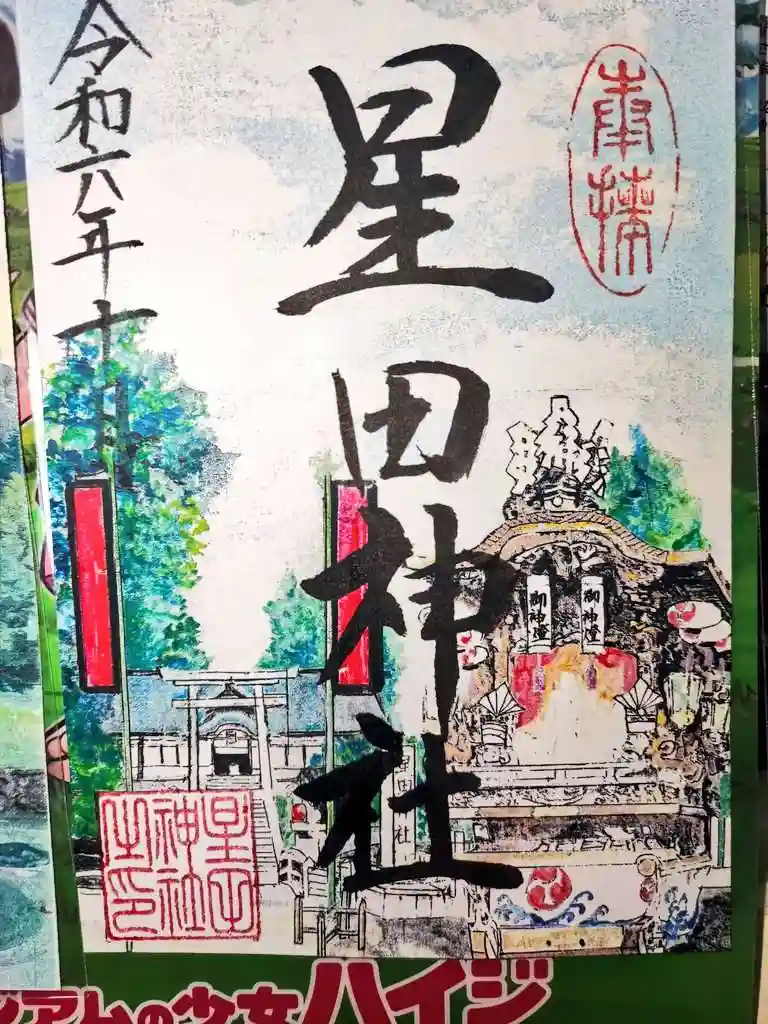 奉拝
星田神社
令和六年十月
御神燈
御神燈
田社
星田神社之印
アムの少女ハイジ